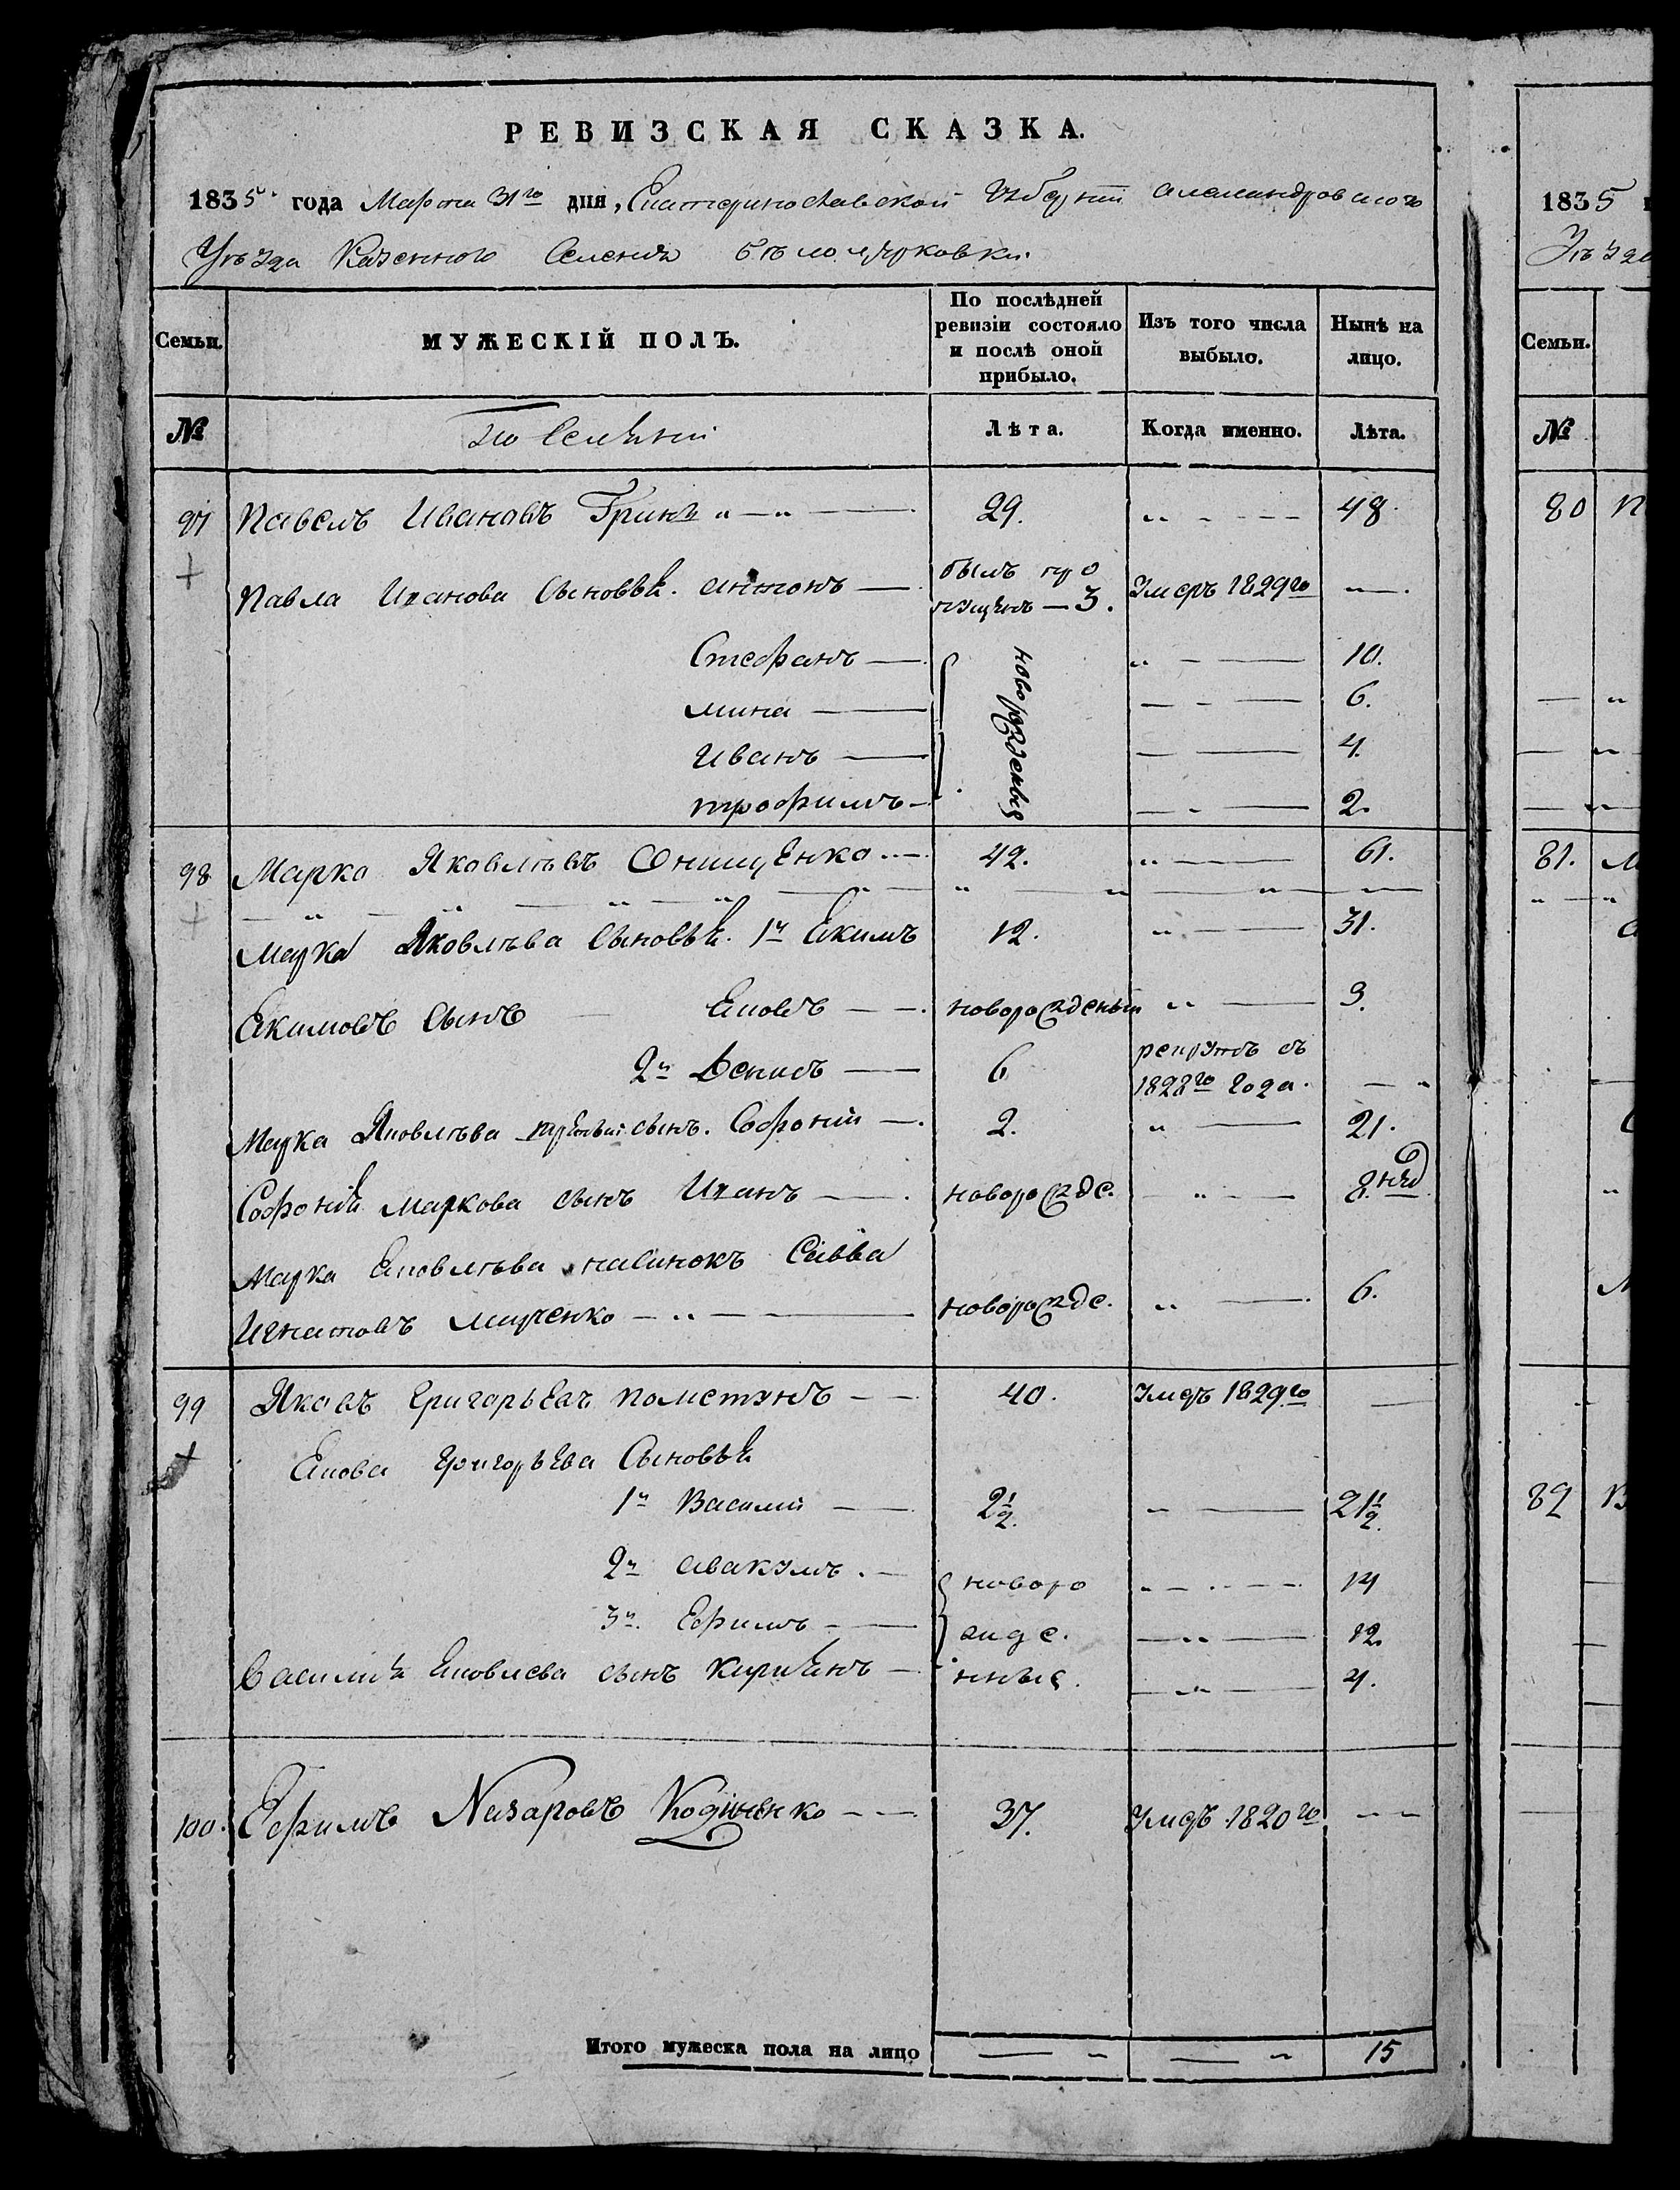 РЕВИЗСКАЯ СКАЗКА.
1835 года Марта 31го дня, Екатеринославской Губерніи Александровского
Уѣзда Казенного Селенія Бѣлоцерковки.
Семьи. МУЖЕСКІЙ ПОЛЪ. По послѣдней ревизіи состояло и послѣ оной прибыло. Изъ того числа выбыло. Нынѣ на лицо.
№ Лѣта. Когда именно. Лѣта.
97 Павелъ Ивановъ Гринь 29. 48
Павла Иванова Сыновья. Антонъ былъ про
пущенъ — 3. Умеръ 1829го
Стефанъ новорожденыя 10.
Мина 6.
Иванъ 4.
Трофимъ 2.
98 Марко Яковлѣвъ Онищенко 42. 61.
Марка Яковлѣва Сыновья. 1й Екимъ 12. 31.
Екимовъ Сынъ Яковъ новорожденый 9.
2й Денисъ 6 рекрутъ съ
1828го года.
Марка Яковлѣва третий сынъ. Софроній 2. 21.
Софронія Маркова сынъ Иванъ новорожде. 8. нед
Марка Яковлѣва пасинокъ Савва
Игнатовъ Марченко новорожде. 6.
99 Яковъ Григорьевъ Полстунъ 40. Умеръ 1829го
Якова Григорьева Сыновья
1й Василий 2½ 21½
2й Авакумъ новоро 14
3й Ефимъ жде. 12
Василия Яковлева сынъ Кириянъ нныя. 4.
100. Ефимъ Назаровъ 37. Умеръ 1820го
Итого мужеска пола на лицо 15
1835
Уѣзда
Семьи.
№
80 П
81. М
82 В